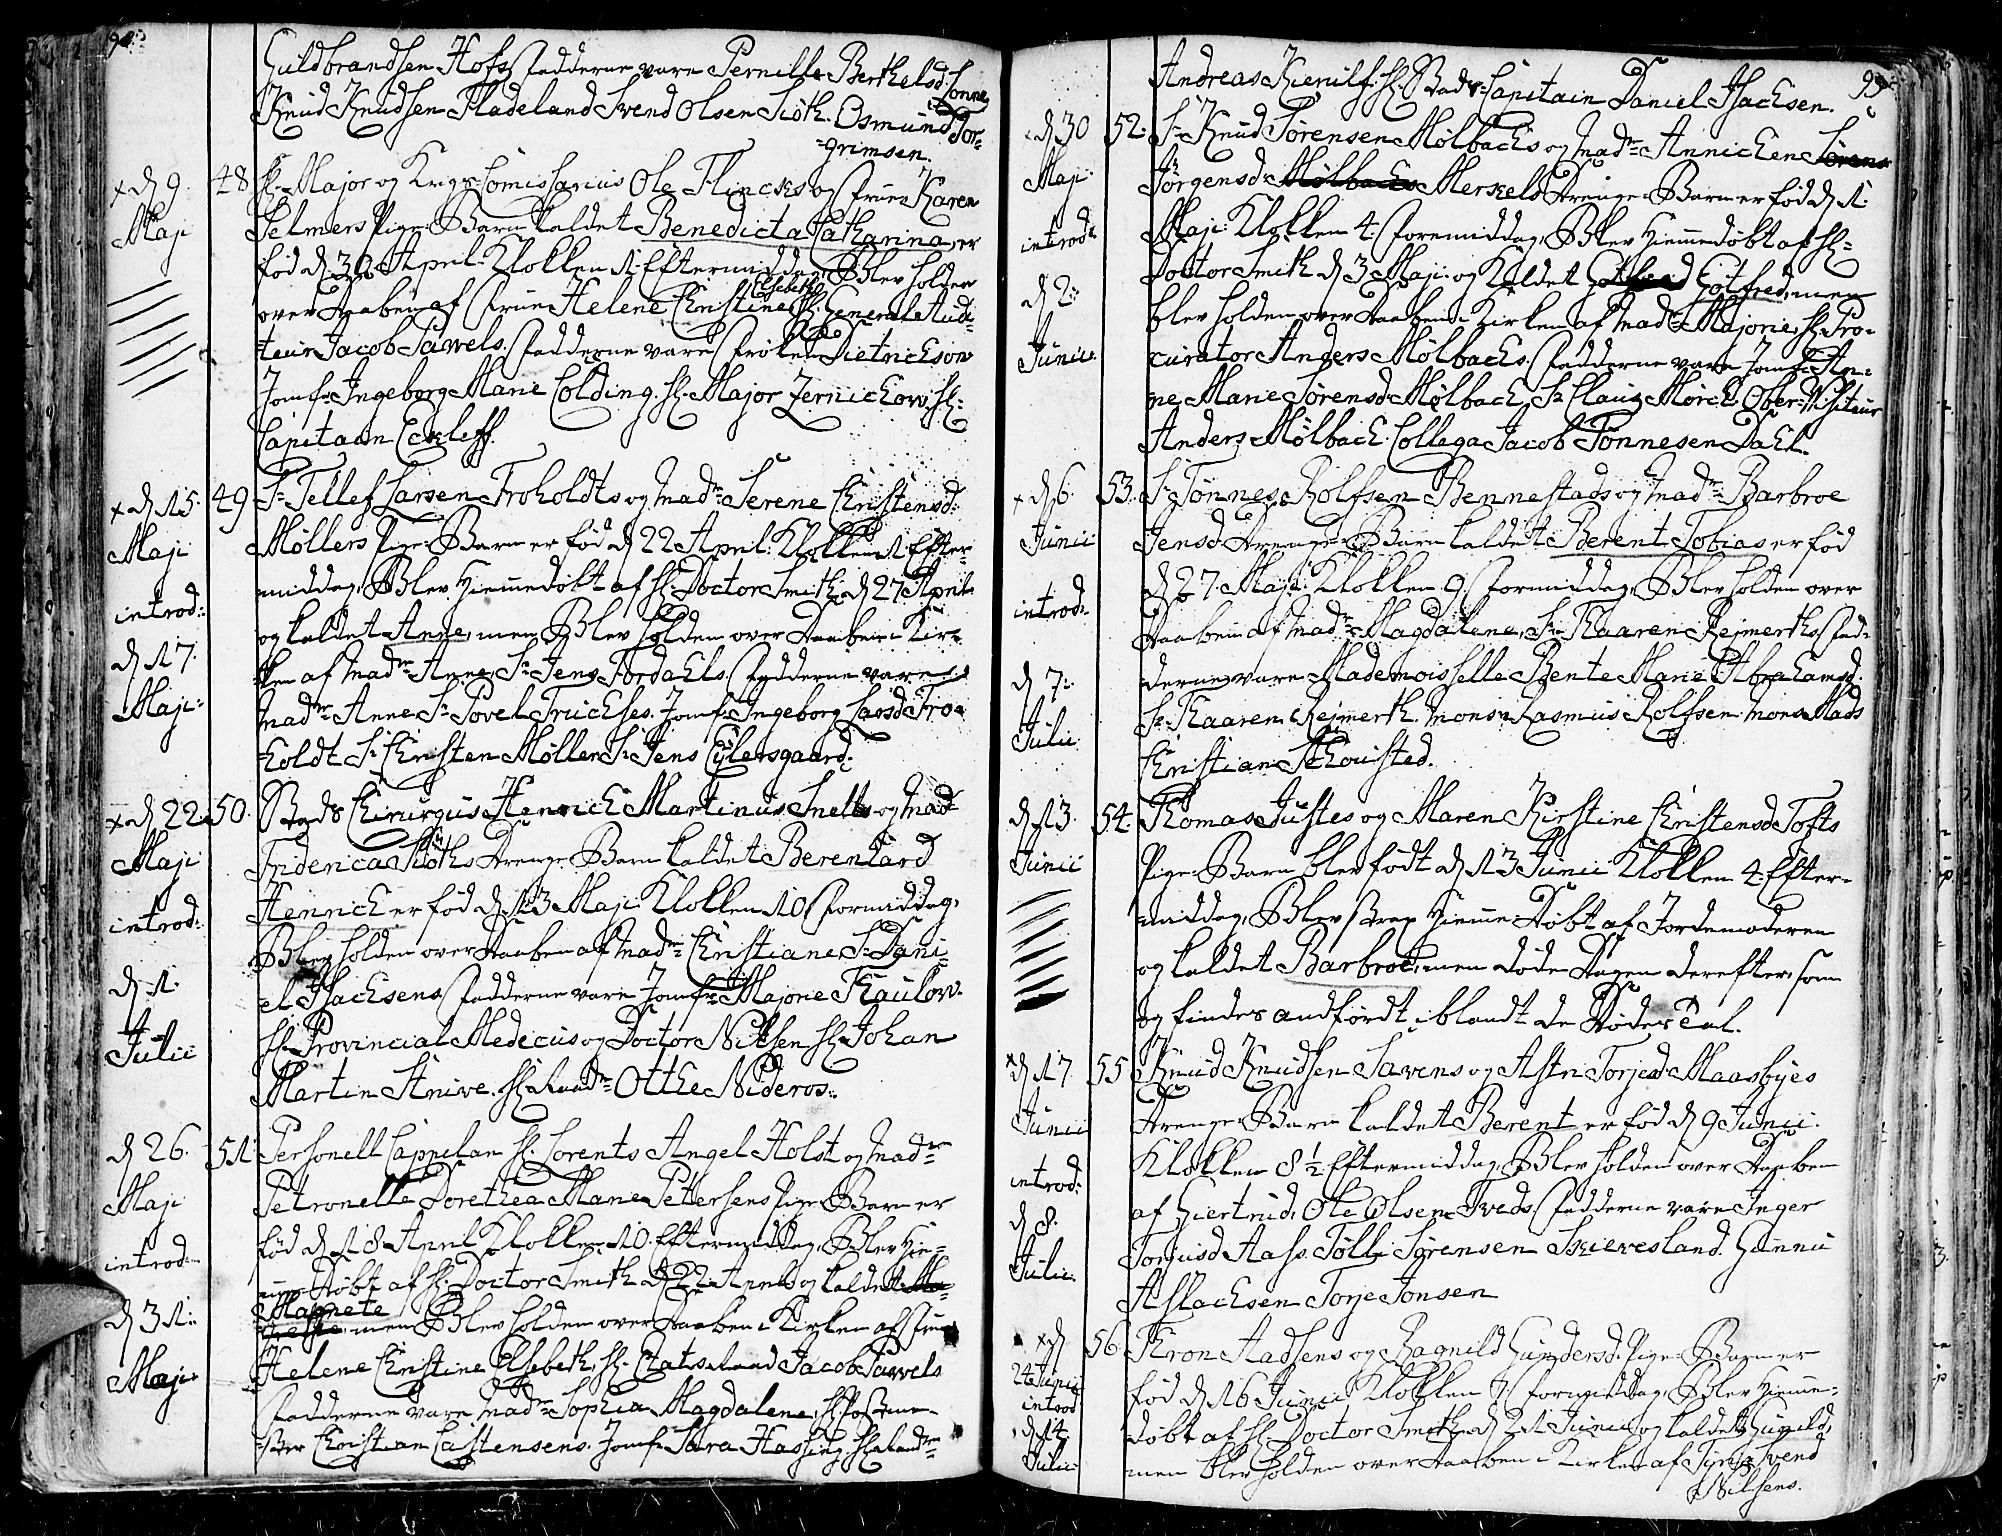 94.
Guldbrandsen Hofs, Fadderne vare Pernille Berthelsd. Tonne
Knud Knudsen Fladeland Svend Olsen Siøth. Osmund Tor-
=grimsen.
x d 9. Maji
48 Hr. Major og Krigs Comissarius Ole Flincks og Frue Karen
Selmers Pige-Barn kaldet Benedicta Catharina, er
fød d 30 April Klokken 1 Eftermiddag, Blev holden
over Daaben af Frue Helene Christine Elsebeth Hr. General Audi-
teur Jacob Pawels. Fadderne vare Frøken Dietrichson
Jomfr. Ingeborg Marie Colding. Hr. Major Zernichow, Hr.
Capitain Eckleff.
x d 15. Maji introd: d 17. Maji:
49 Sr. Tellef Larsen Froholdts og Madme Serene Christensd.
Møllers Pige-Barn er fød d 22 April: Klokken 1 Efter-
middag, Blev Hiemmedøbt af Hr. Doctor Smith d 27 April
og kaldet Anne, men Blev holden over Daaben i Kir-
ken af Madme Anne, Sr. Jens Tordaels. Fadderne vare
Madme Anne Sr. Povel Truelses. Jomfr. Ingeborg Larsd. Fro-
holdt Sr. Christen Møller Sr. Jens Eylersgaard.
x d 22. Maji introd: d 1. Julii
50. Stads Chirurgus Henrich Martinus Snells og Madme
Friderica Siøths Drenge Barn kaldet Berenhard
Henrich er fød d 13 Maji Klokken 10 Formiddag,
Blev holden over Daaben af Madme Christiane Sr. Dani-
el Isachsens, Fadderne vare Jomfr. Majorie Thaulow.
Hr. Provincial Medicus og Doctor Nilsen Hr. Johan
Martin Stnive. Hr. Raadm. Otthe Nideros.
d 26. Maji introd: d 31: Maji:
51: Personell Cappelan Hr. Lorents Angel Holst og Madme
Petronelle Dorethea Marie Petersens Pige-Barn er
fød d 18 April Klokken 10. Eftermiddag, Blev Hie-
me Døbt af Hr. Doctor Smith d 22 April og kaldet
Magnete men Blev holden over Daaben i Kirken af Frue
Helene Christine Elsebeth, Hr. Etatsraad Jacob Pawels
Fadderne vare Madme Sophia Magdalene, Hr. Postme-
ster Christian Castensens. Jomfr. Sara Hassing. Hr. Raadm.
95
Andreas Kierulf. Hr. Stads-Capitain Daniel Isachsen.
x d 30 Maji introd: d 2: Junii:
52. Sr. Knud Sørensen Mølbachs og Madme Annichen Sørens
Jørgensd. Mølbachs Merxels Drenge-Barn er fød d 1
Maji Klokken 4. Foremiddag, Blev Hiemmedøbt af Hr.
Doctor Smith d 3 Maji og Kaldet Gotfred, men
blev holden over Daaben i Kirken af Madme Majorie, Hr. Pro-
curator Anders Mølbachs. Fadderne vare Jomfr. An-
ne Marie Sørensd. Mølbach, Sr. Claus Mørch Ober-Visiteur
Anders Mølbach. Collega Jacob Tønnesen Dahl.
x d 6. Junii introd: d 7: Julii
53. Sr. Tønnes Rolfsen Bennestads og Madme Barbroe
Jensd. Drenge-Barn kaldet Berent Tobias er fød
d 27. Maji Klokken 9. Formiddag, Blev holden over
Daaben af Madme Magdalene, Sr. Kaaren Rejmerths, Fad-
derne vare Mademoiselle Bente Marie Abrahamsd.
Sr. Kaaren Rejmerth. Monsr. Rasmus Rolfsen. Mons. Mads
Christian Schousted.
d 13. Junii
54. Thomas Justes og Maren Kirstine Christensd. Tofts
Pige Barn blev født d 13 Junii Klokken 4. Efter-
middag, Blev strax Hiemme-Døbt af Jordemoderen
og kaldet Barbroe, men døde Dagen derefter, som
og findes andført iblandt de Dødes Tal.
x d 17. Junii introd: d 8. Julii:
55 Knud Knudsen Savens og Astri Torjesd. Maasbyes
Drenge Barn kaldet Berent er fød d 9 Junii.
Klokken 8½ Eftermiddag, Blev holden over Daaben
af Giertrud, Ole Olsen Tveds. Fadderne vare Inger
Torjusd. Aass. Tølle Sørensen Skieresland. Gunnu
Aslachsen Torje Jonsen
x d 24 Junii introd d 14 Julii
56. Thron Aadsens og Ragnild Gundersd. Pige-Barn er
fød d 16 Junii Klokken 7. Formiddag, Blev Hiemme-
døbt af Hr. Doctor Smith d 21 Junii og kaldet Gunild,
men blev holden over Daaben i Kirken af Siri, Svend
Nilsens.